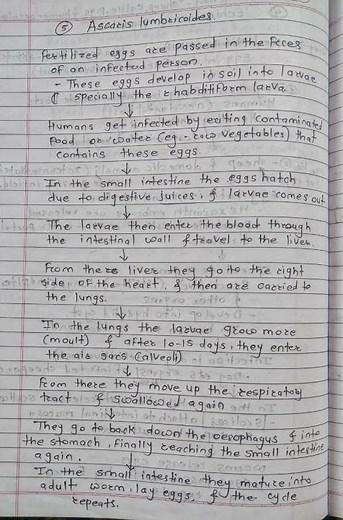 ⑤ Ascaris lumbricoides
Fertilized eggs are passed in the feces
of an infected person.
- These eggs develop in soil into larvae
specially the rhabditiform larva.
↓
Humans get infected by eating contaminated
food or water (eg - raw vegetables) that
contains these eggs.
↓
In the small intestine the eggs hatch
due to digestive juices, & larvae comes out
↓
The larvae then enter the blood through
the intestinal wall & travel to the liver.
↓
From there liver they go to the right
side of the heart, & then are carried to
the lungs.
↓
In the lungs the larvae grow more
(moult) & after 10-15 days, they enter
the air sacs (alveoli)
↓
From there they move up the respiratory
tract & swallowed again
↓
They go to back down the oesophagus & into
the stomach, finally reaching the small intestine
again.
↓
In the small intestine they mature into
adult worm, lay eggs, & the cycle
repeats.